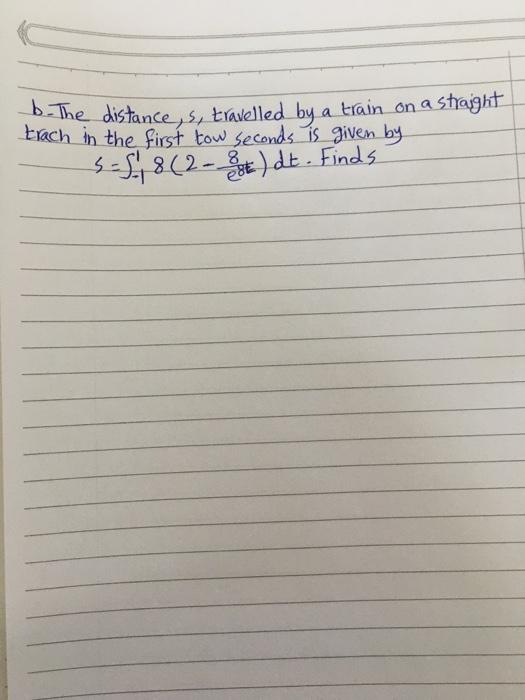 b-The distance, s, travelled by a train on a straight
trach in the first tow seconds is given by
s = ∫₋₁¹ 8(2 - 8/e^{8t}) dt. Find s